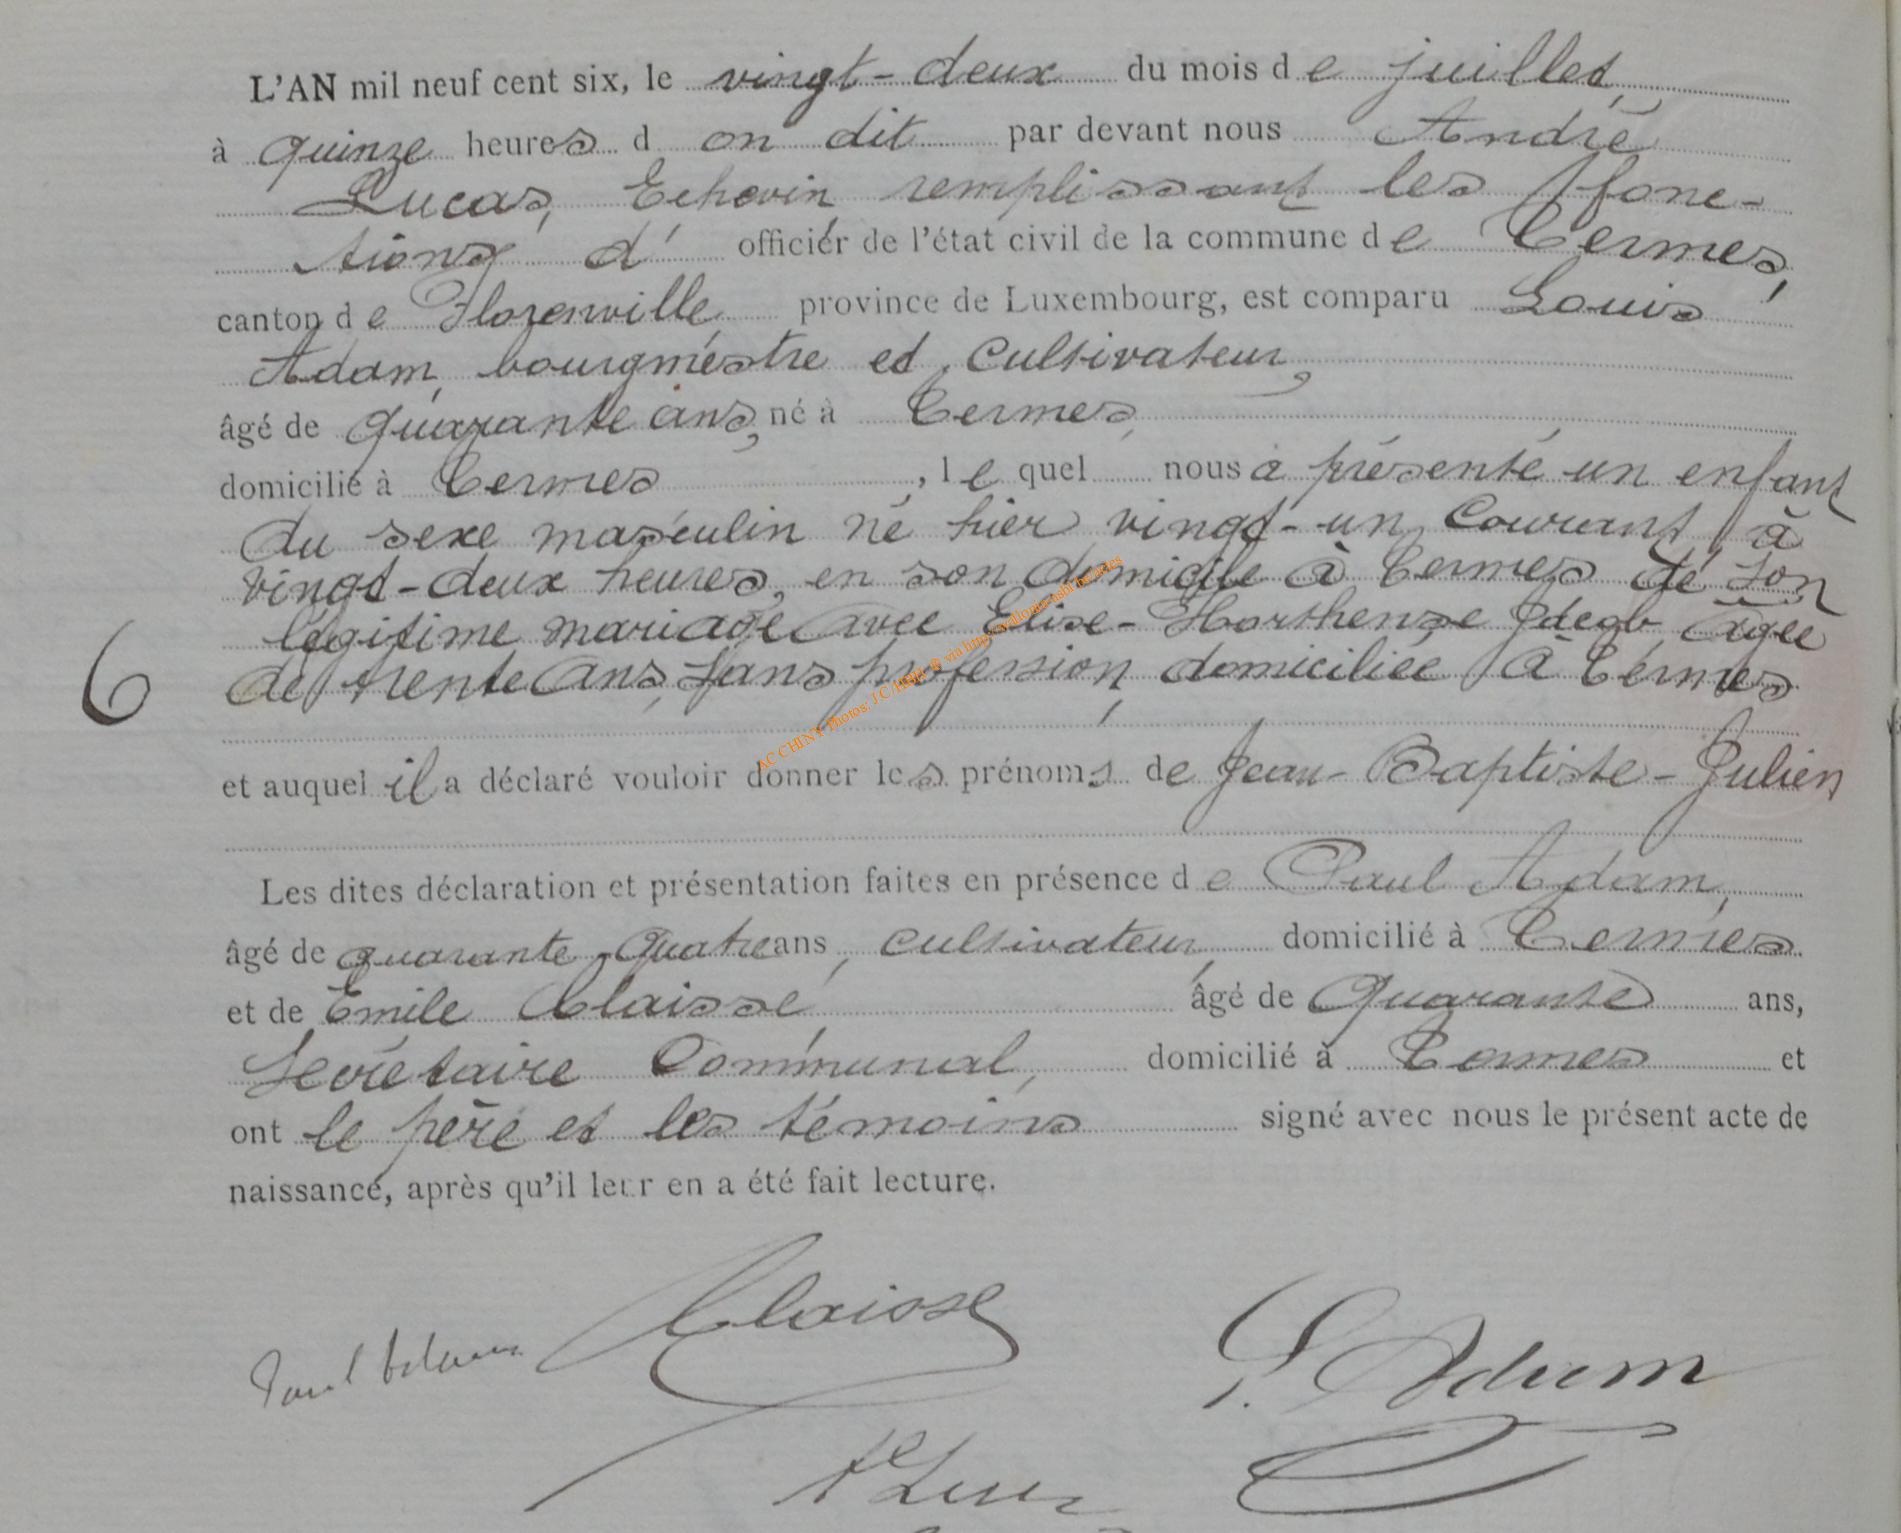 L'AN mil neuf cent six, le vingt-deux du mois de juillet,
à quinze heures d on dit par devant nous André
Lucas, Echevin remplissant les fonc-
tions d' officier de l'état civil de la commune de Termes,
canton de Florenville province de Luxembourg, est comparu Louis
Adam, bourgmestre et cultivateur,
âgé de quarante ans, né à Termes,
domicilié à Termes, lequel nous a présenté un enfant
du sexe masculin né hier vingt-un courant, à
vingt-deux heures, en son domicile à Termes de son
légitime mariage avec Elise-Horthense âgée
de trente ans, sans profession, domiciliée à Termes
6
et auquel il a déclaré vouloir donner les prénoms de Jean-Baptiste-Julien,
Les dites déclaration et présentation faites en présence de Paul Adam,
âgé de quarante-quatre ans, cultivateur, domicilié à Termes
et de Emile Claisse, âgé de quarante ans,
Secrétaire Communal, domicilié à Termes et
ont le père et les témoins signé avec nous le présent acte de
naissance, après qu'il leur en a été fait lecture.
Claisse
Paul Adam
L. Adam
A Lucas
AC CHINY Photos: J C via